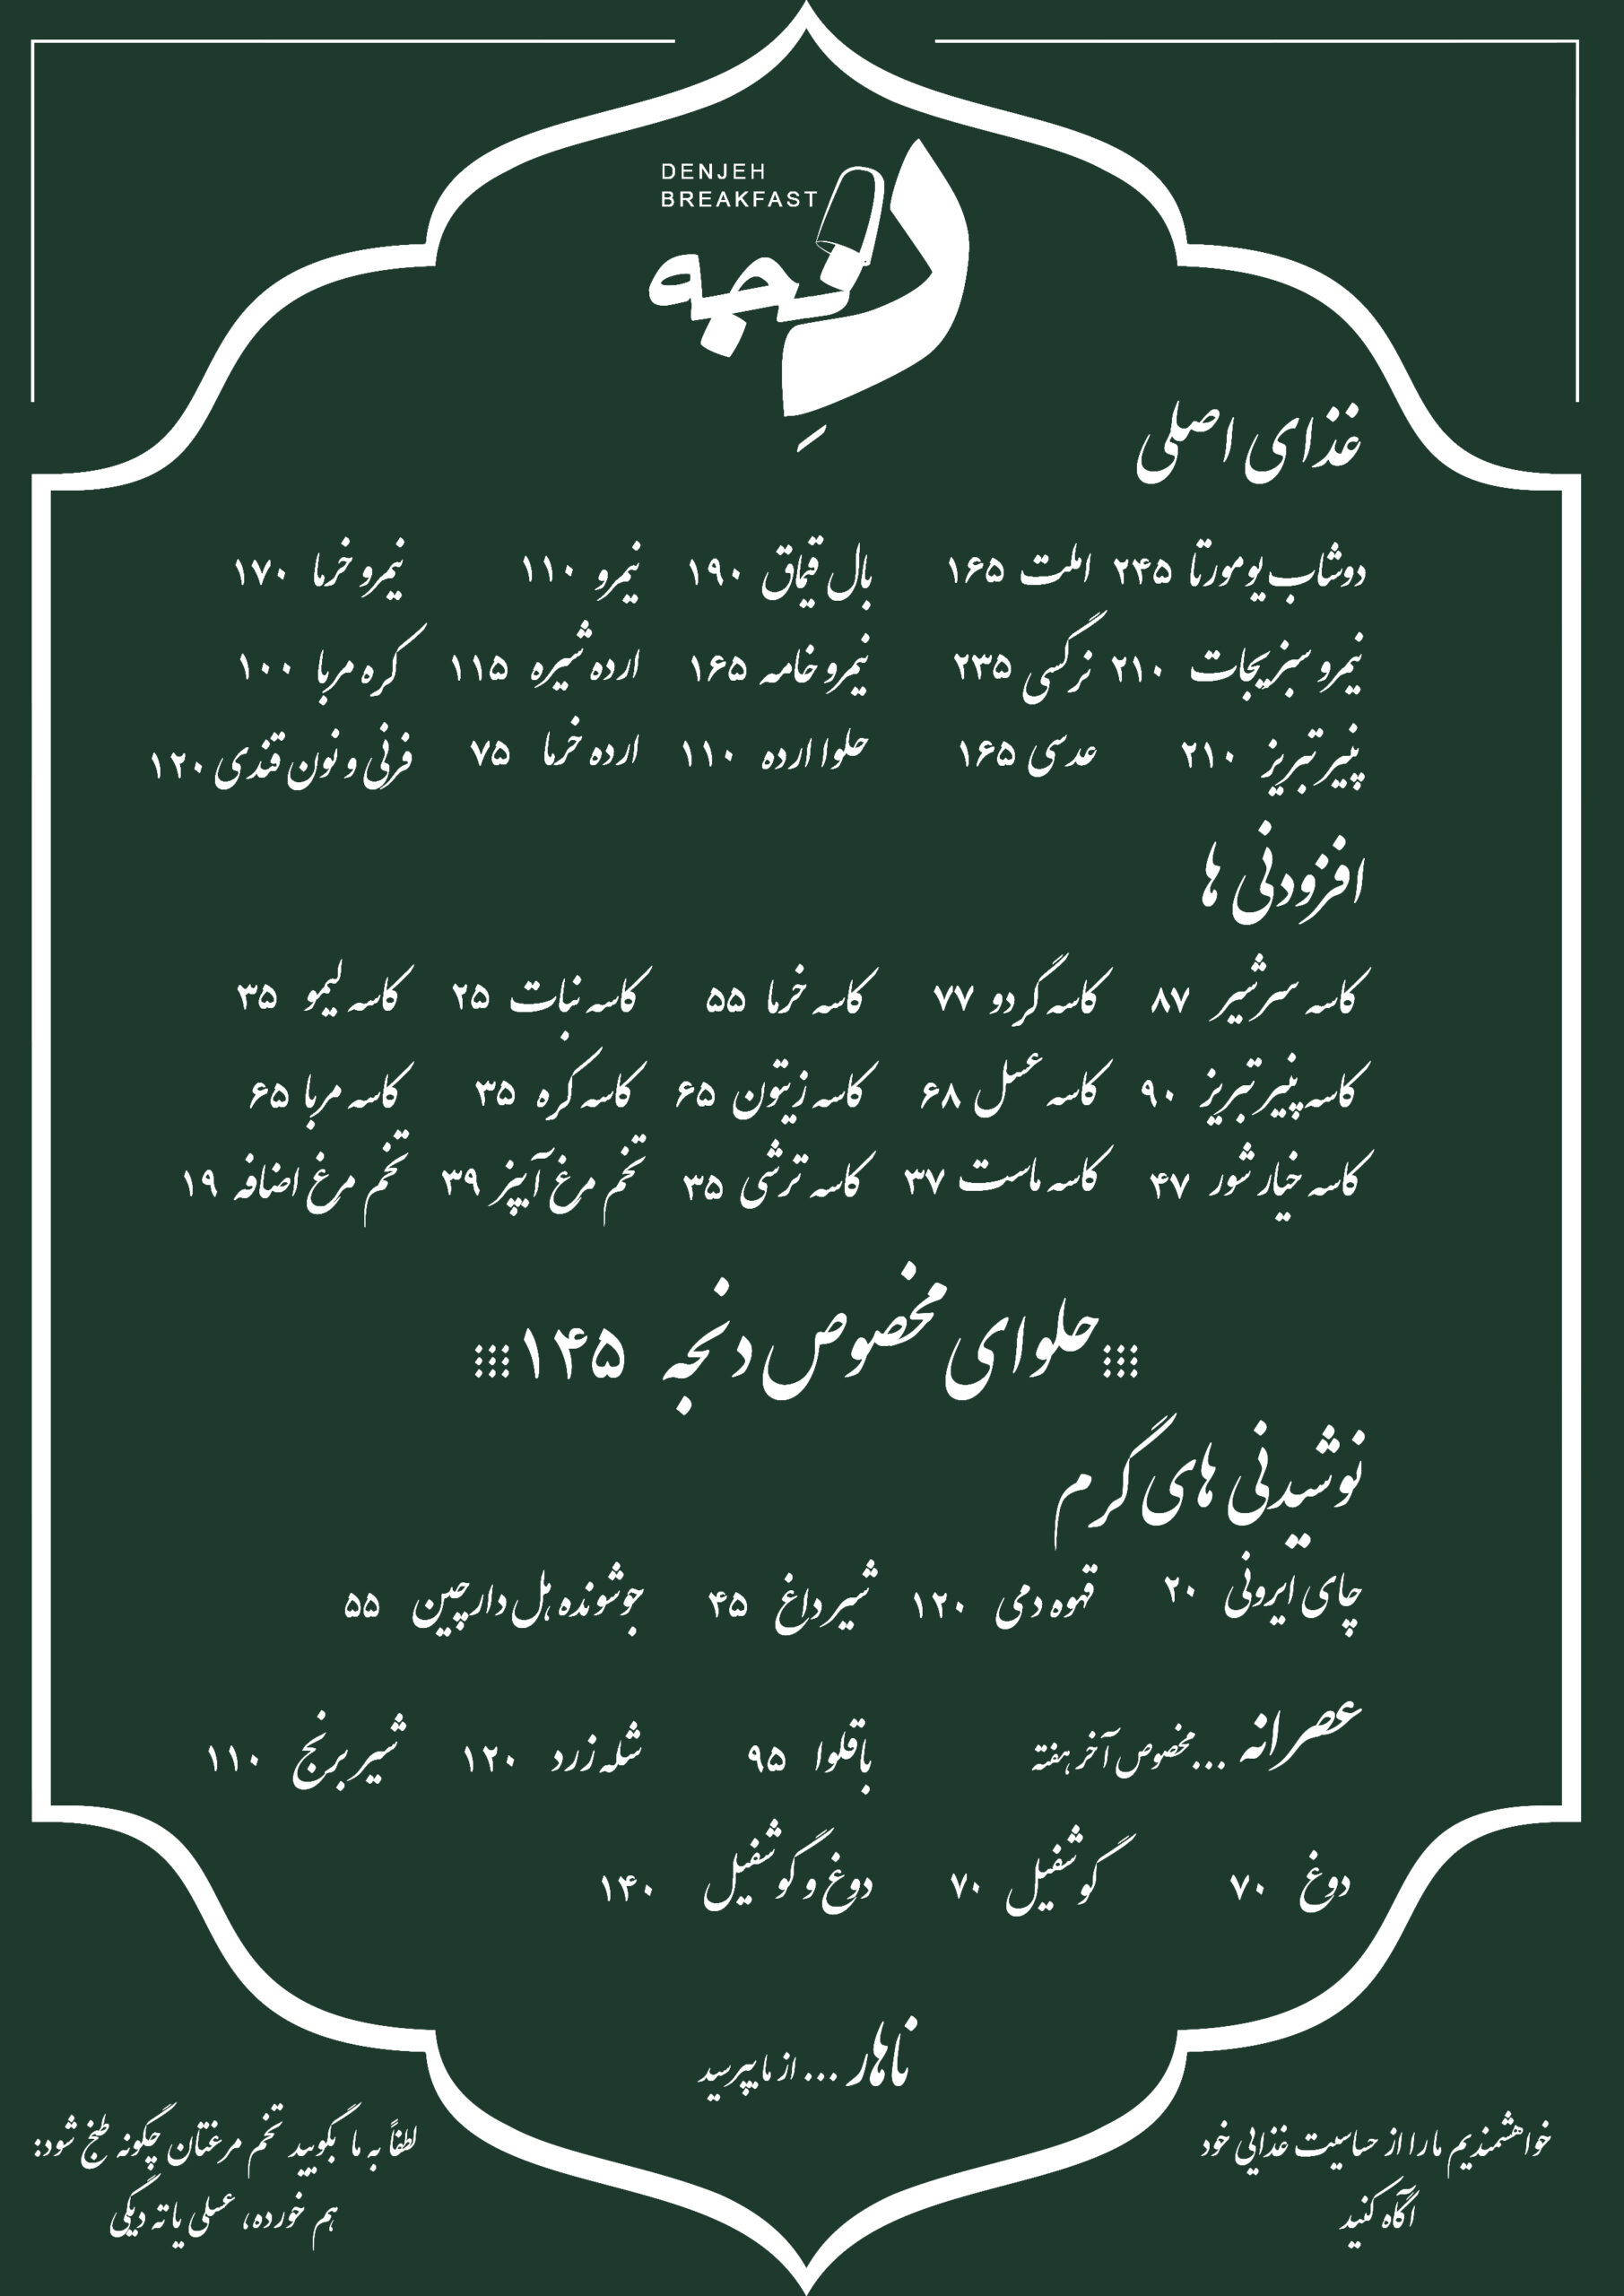 DENJEH
BREAKFAST
دنجه
غذای اصلی
دوشاب یومورتا ۲۴۵ املت ۱۶۵ بال قیماق ۱۹۰ نیمرو ۱۱۰ نیمرو خرما ۱۷۰
نیمرو سبزیجات ۲۱۰ نرگسی ۲۳۵ نیمرو خامه ۱۶۵ ارده شیره ۱۱۵ کره مربا ۱۰۰
پنیر تبریز ۲۱۰ عدسی ۱۶۵ حلوا ارده ۱۱۰ ارده خرما ۷۵ فرنی و نون قندی ۱۲۰
افزودنی ها
کاسه سرشیر ۸۷ کاسه گردو ۷۷ کاسه خرما ۵۵ کاسه نبات ۲۵ کاسه لیمو ۳۵
کاسه پنیر تبریز ۹۰ کاسه عسل ۶۸ کاسه زیتون ۶۵ کاسه کره ۳۵ کاسه مربا ۶۵
کاسه خیار شور ۴۷ کاسه ماست ۳۷ کاسه ترشی ۳۵ تخم مرغ آبپز ۳۹ تخم مرغ اضافه ۱۹
حلوای مخصوص دنجه ۱۴۵
نوشیدنی های گرم
چای ایرونی ۲۰ قهوه دمی ۱۲۰ شیر داغ ۴۵ جوشونده هل دارچین ۵۵
عصرانه ...مخصوص آخر هفته باقلوا ۹۵ شله زرد ۱۲۰ شیر برنج ۱۱۰
دوغ ۷۰ گوشفیل ۷۰ دوغ و گوشفیل ۱۴۰
ناهار ... از ما بپرسید
خواهشمندیم ما را از حساسیت غذایی خود
آگاه کنید
لطفاً به ما بگویید تخم مرغتان چگونه طبخ شود:
هم خورده، عسلی یا ته دیگی